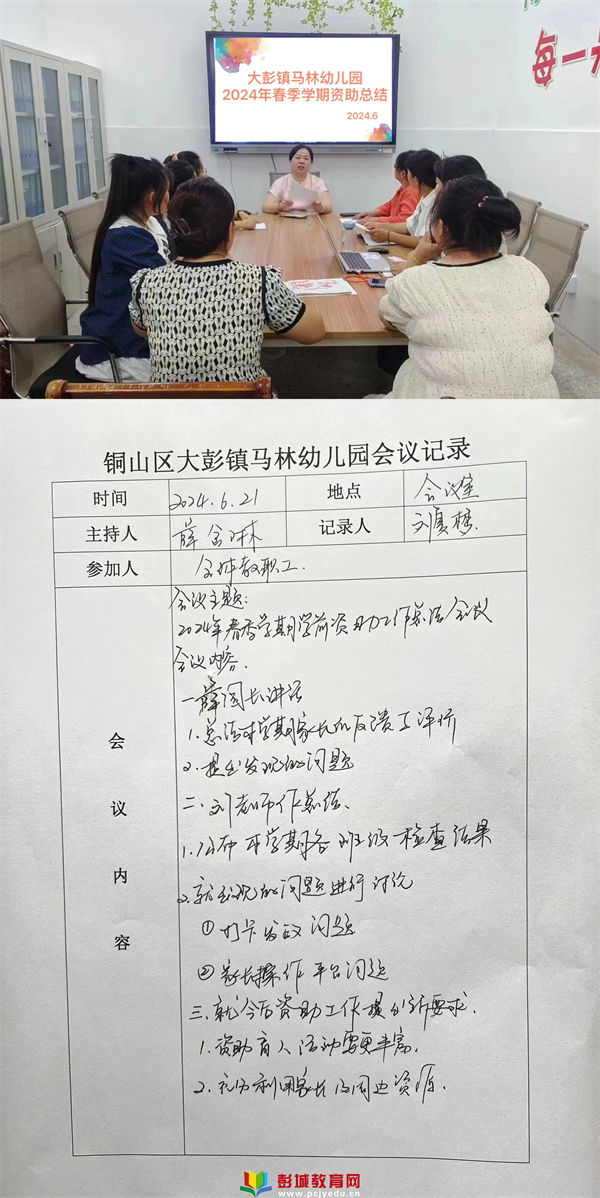 每一
大彭镇马林幼儿园
2024年春季学期资助总结
2024.6
铜山区大彭镇马林幼儿园会议记录
时间 2024.6.21 地点 会议室
主持人 薛 记录人 刘夏
参加人 全体教职工.
会议内容
会议主题:
2024年春季学期学前资助工作总结会议
会议内容.
一薛园长讲话
1.总结本学期家长的反馈与评价
2.提出发现的问题
二、刘老师作总结.
1.公布本学期各班级检查结果
2.就出现的问题进行讨论
①打卡发放问题
②家长操作平台问题
三.就今后资助工作提出新要求.
1.资助育人活动需更丰富.
2.充分利用家长及周边资源.
彭城教育网
www.pcjyedu.cn